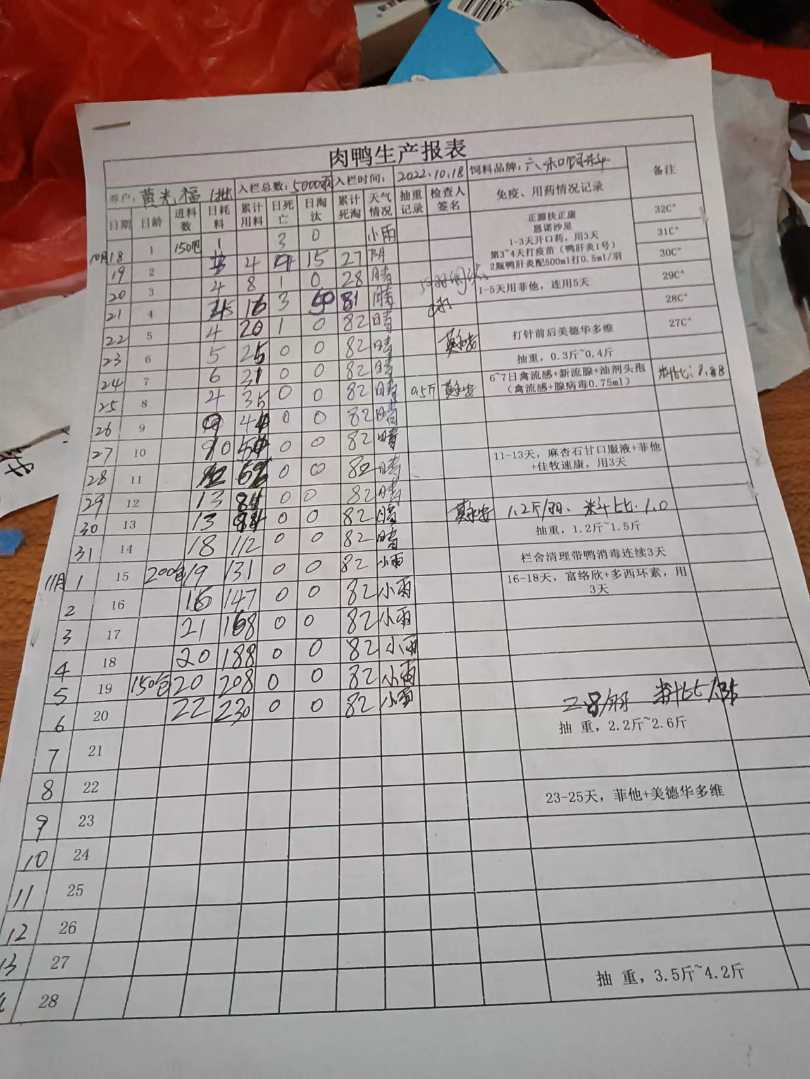 肉鸭生产报表
养户: 黄光福 1批 入栏总数: 5000羽 入栏时间: 2022.10.18 饲料品牌: 六和饲料 备注
日期 日龄 进料数 日耗料 累计用料 日死亡 日淘汰 累计死淘 天气情况 抽重记录 检查人签名 免疫、用药情况记录
10月18 1 150包 1 3 0 小雨 正源扶正康 32C°
恩诺沙星
19 2 3 4 15 27 阴 1-3天开口药，用3天 31C°
第3~4天打疫苗（鸭肝炎1号）
20 3 4 8 1 0 28 晴 2瓶鸭肝炎配500ml打0.5ml/羽 30C°
21 4 16 3 50 81 晴 1-5天用菲他，连用5天 29C°
22 5 4 20 1 0 82 晴 28C°
23 6 5 25 0 0 82 晴 打针前后美德华多维 27C°
24 7 6 31 0 0 82 晴 抽重，0.3斤~0.4斤
25 8 4 35 0 0 82 晴 0.5斤 6~7日禽流感+新流腺+油剂头孢 料比: 0.88
（禽流感+腺病毒0.75ml）
26 9 9 44 0 0 82 晴
27 10 10 54 0 0 82 晴
28 11 0 0 82 晴 11-13天，麻杏石甘口服液+菲他
+佳牧速康，用3天
29 12 13 84 0 0 82 晴
30 13 13 94 0 0 82 晴 1.2斤/羽. 料比: 1.0
31 14 18 112 0 0 82 晴 抽重，1.2斤~1.5斤
11月1 15 200包 19 131 0 0 82 小雨 栏舍清理带鸭消毒连续3天
2 16 16 147 0 0 82 小雨 16-18天，富络欣+多西环素，用
3天
3 17 21 168 0 0 82 小雨
4 18 20 188 0 0 82 小雨
5 19 150包 20 208 0 0 82 小雨
6 20 22 230 0 0 82 小雨 料比
7 21 抽 重，2.2斤~2.6斤
8 22
9 23 23-25天，菲他+美德华多维
10 24
11 25
12 26
13 27
28 抽 重，3.5斤~4.2斤